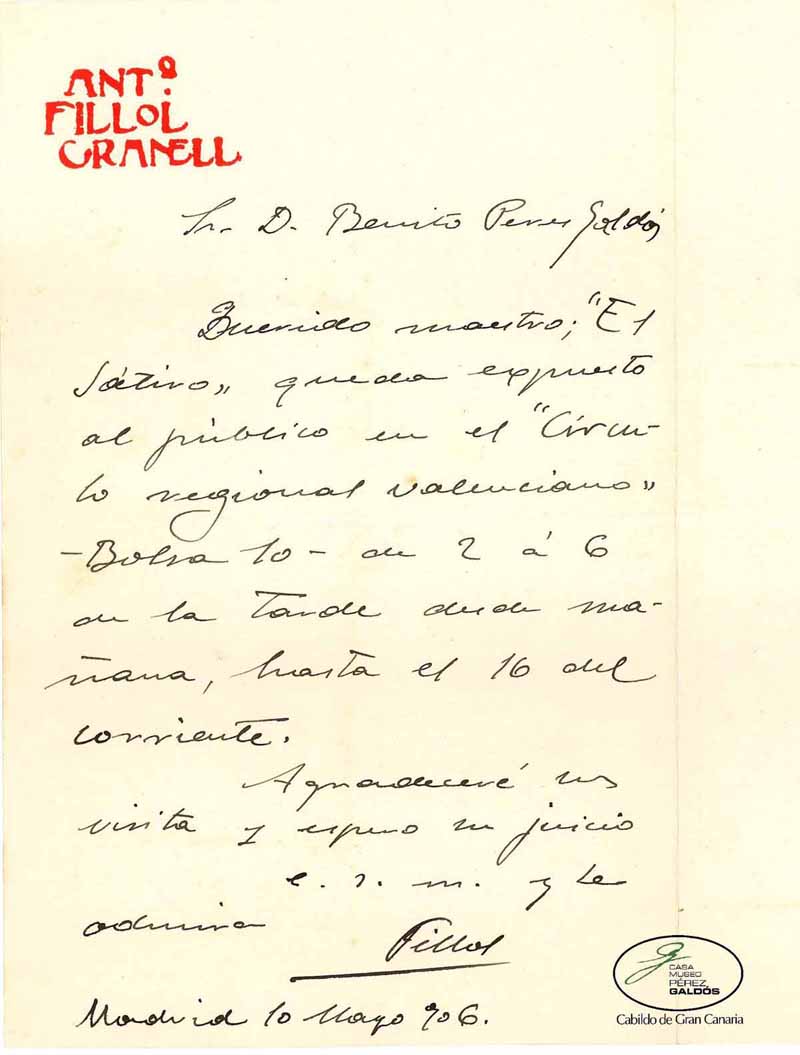 ANTº.
FILLOL
GRANELL
Sr. D. Benito Perez Galdós
Querido maestro; "El
Sátiro" queda expuesto
al público en el "Círcu-
lo regional valenciano"
-Bolsa 10- de 2 á 6
de la tarde desde ma-
ñana, hasta el 16 del
corriente.
Agradeceré su
visita y espero su juicio
e. s. m. y le
admira
Fillol
Madrid 10 Mayo 906.
CASA
MUSEO
PÉREZ
GALDÓS
Cabildo de Gran Canaria